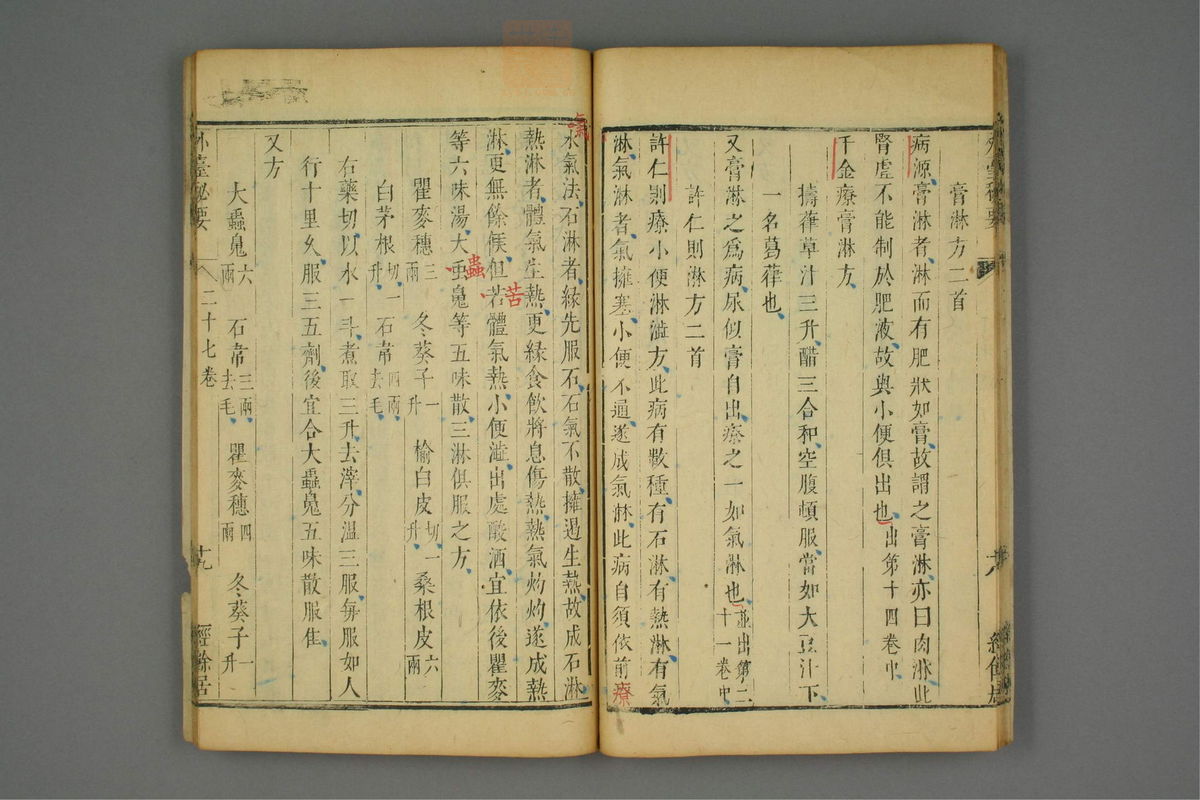 膏淋方二首
病源膏淋者淋而有肥狀如膏故謂之膏淋亦曰肉淋此
腎虛不能制於肥液故與小便俱出也出第十四卷中
千金療膏淋方
擣葎草汁三升醋三合和空腹頓服當如大豆汁下
一名葛葎也
又膏淋之爲病尿似膏自出療之一如氣淋也並出第二十一卷中
許仁則淋方二首
許仁則療小便淋澁方此病有數種有石淋有熱淋有氣
淋氣淋者氣擁塞小便不通遂成氣淋此病自須依前療
氣
水氣法石淋者緣先服石石氣不散擁遏生熱故成石淋
熱淋者體氣生熱更緣食飲將息傷熱熱氣灼灼遂成熱
淋更無餘候但若體氣熱小便澁出處酸洒宜依後瞿麥
苦
等六味湯大虫䰟等五味散三淋俱服之方
蟲
瞿麥穗三兩 冬葵子一升 榆白皮切一升 桑根皮六兩
白茅根切一升 石韋四兩去毛
右藥切以水一斗煮取三升去滓分溫三服每服如人
行十里久服三五劑後宜合大蟲䰟五味散服佳
又方
大蟲䰟六兩 石韋三兩去毛 瞿麥穗四兩 冬葵子一升
外臺秘要 二十七卷 十九 經餘居